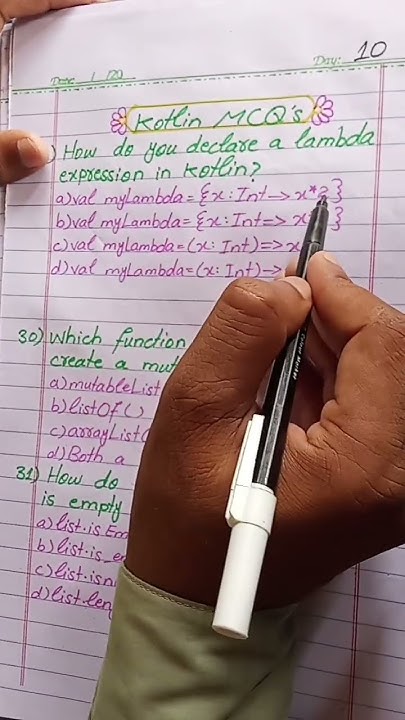 Date: / /20
Day: 10
Kotlin MCQ's
) How do you declare a lambda
expression in Kotlin?
a) val myLambda = {x : Int -> x*2}
b) val myLambda = {x : Int => x }
c) val myLambda = (x : Int) => x
d) val myLambda = (x : Int) ->
30) Which function
create a mut
a) mutableList
b) listOf()
c) arrayList(
d) Both a
31) How do
is empty
a) list.isEm
b) list.is_e
c) list.isn
d) list.len